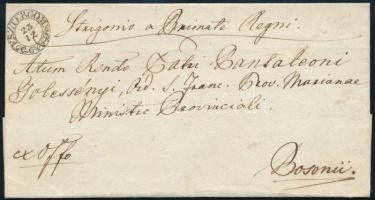 ESZTERGOM
25
12
Strigonio a Primate Regni.
Atum Rendo Patri Pantaleoni
Golessényi, Ord. S. Franc. Prov. Marianae
Ministro Provinciali.
ex Offo
Posonii.